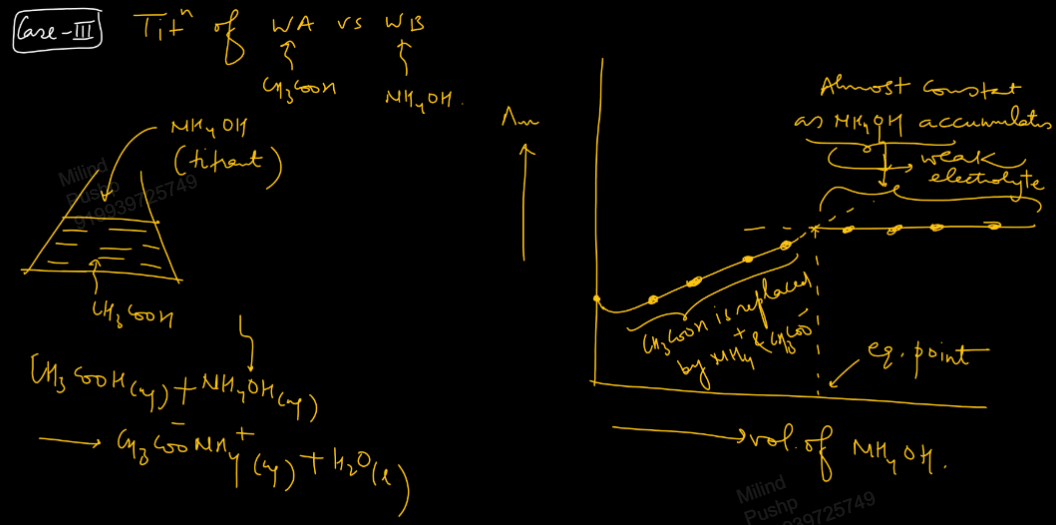 Case-III
Titⁿ of WA vs WB
CH₃COOH
NH₄OH.
NH₄OH
(titrant)
CH₃COOH
CH₃COOH(aq) + NH₄OH(aq)
⟶ CH₃COO⁻NH₄⁺(aq) + H₂O(l)
Λm
Almost constant
as NH₄OH accumulates
weak
electrolyte
CH₃COOH is replaced
by NH₄⁺ & CH₃COO⁻
eq. point
⟶ vol. of NH₄OH.
Milind
Pushp
919939725749
Milind
Pushp
939725749